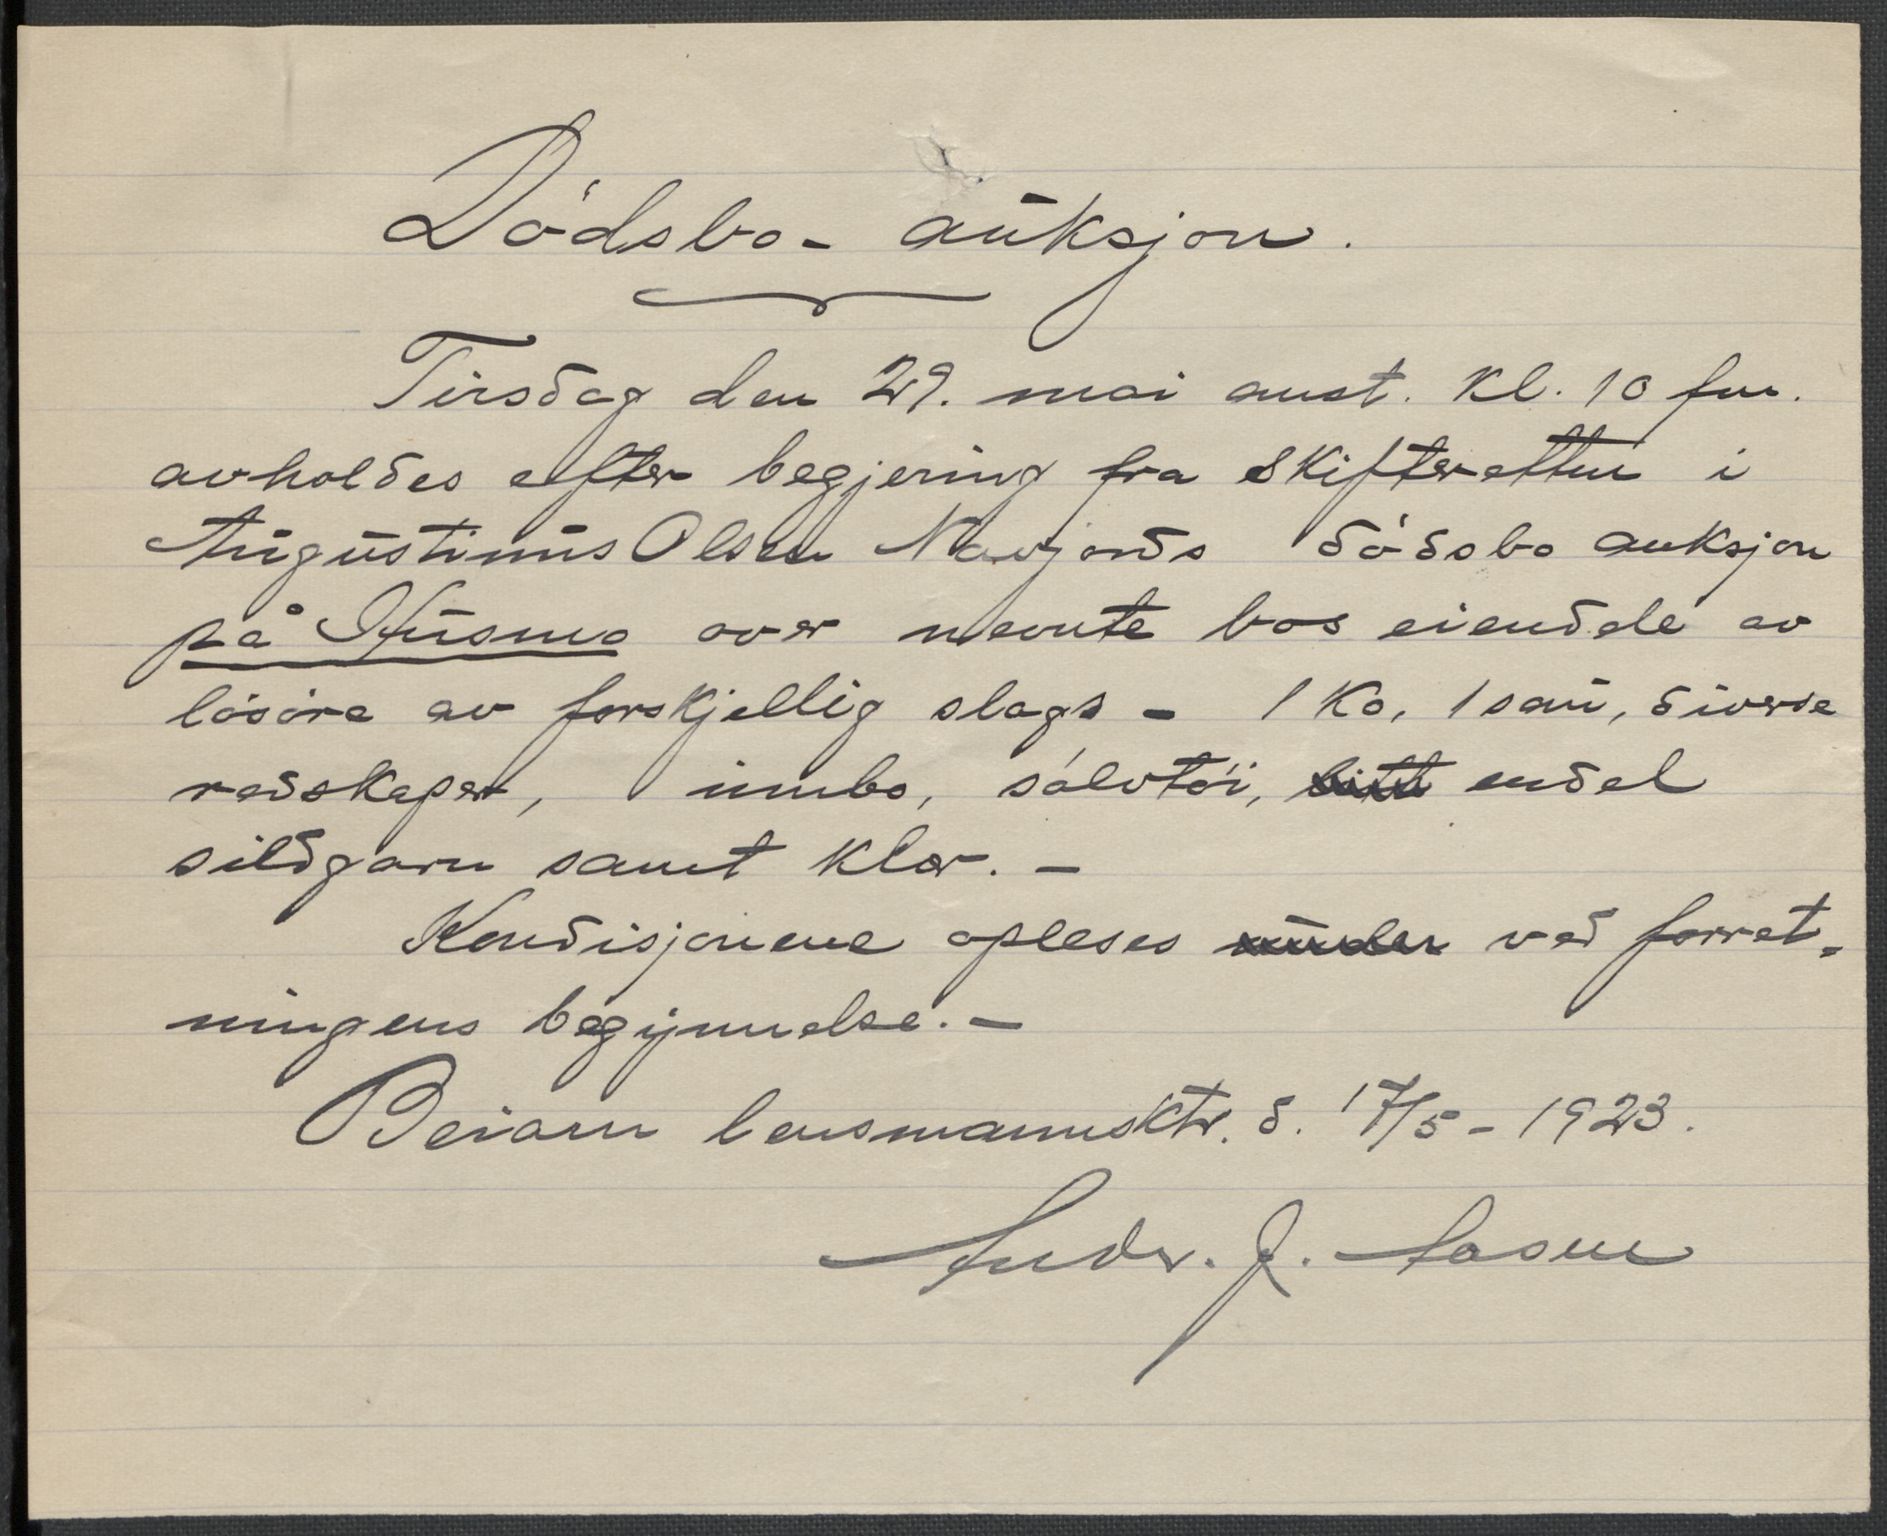 Dødsbo- auksjon.
Tirsdag den 29. mai anst. kl. 10 fm.
avholdes efter begjering fra skifteretten i
Augustinus Olsen Navjords dødsbo auksjon
på Husmo over nevnte bos eiendele av
løsøre av forskjellig slags - 1 ko, 1 sau, diverse
redskaper, innbo, sølvtøi, litt endel
sildgarn samt klær. -
Kondisjonene opleses under ved forret-
ningens begynnelse. -
Beiarn lensmannsktr. d. 17/5 - 1923.
Andr. J. Aasen